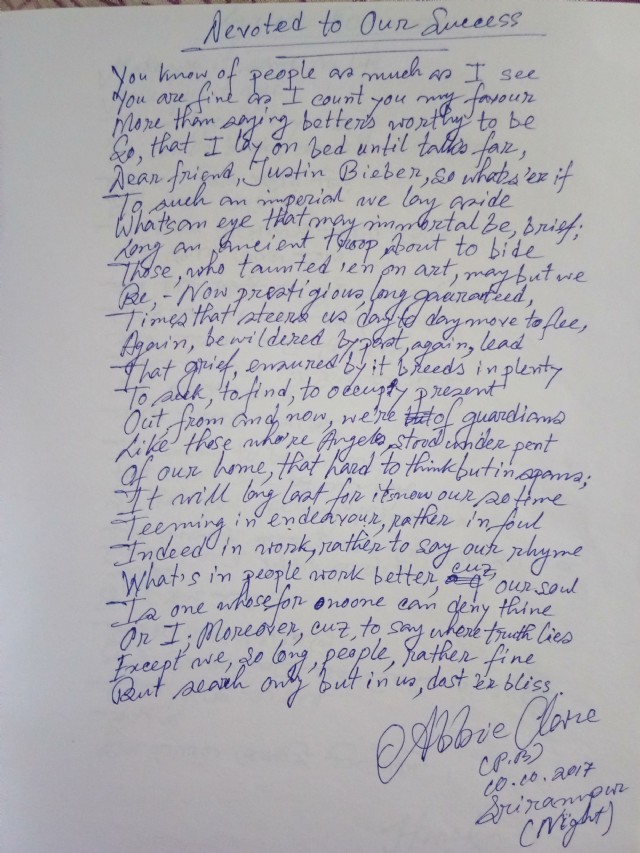 Devoted to Our Success
You know of people as much as I see
You are fine as I count you my favour
More than saying betters worthy to be
So, that I lay on bed until talks far,
Dear friend, Justin Bieber, so whats'er if
To such an imperial we lay aside
Whatsan eye that may immortal be, brief;
Long an ancient troop about to bide
Those, who taunted 'en on art, may but we
Be, - Now prestigious, long gauranteed,
Times that steers us day to day move to flee,
Again, bewildered by past, again, lead
That grief, ensured by it breeds in plenty
To seek, to find, to occupy present
Out from and now, we're of guardians
Like those who're Angels, stood under pent
Of our home, that hard to think but in spans;
It will long last for it now our so time
Teeming in endeavour, rather in foul
Indeed in work, rather to say our rhyme
What's in people work better, cuz, our soul
Is one whose for noone can deny thine
Or I; Moreover, cuz, to say where truth lies
Except we, so long, people, rather fine
But search only but in us, dost 'er bliss.
Abbie Clare
(P.B)
10.10.2017
Srirampur
(Night)